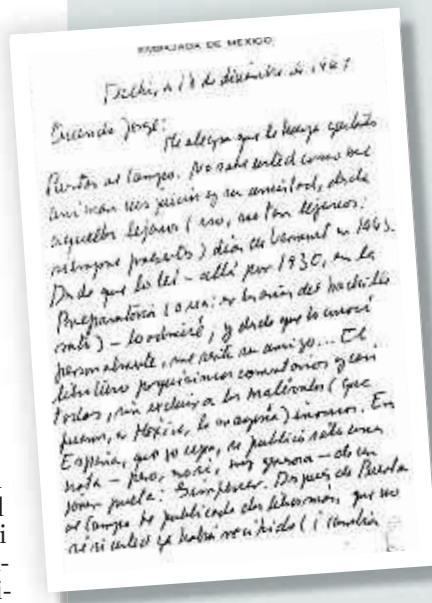 EMBAJADA DE MEXICO
Delhi, a 18 de diciembre de 1967
Querido Jorge:
Me alegra que le haya gustado
Puertas al campo. No sabe usted como me
animan sus juicios y su amistad, desde
aquellos lejanos (no, no tan lejanos:
presentes) días de Vermont en 1943.
Desde que lo leí – allá por 1930, en la
Preparatoria (o sea: del bachille
rato) – lo admiré, y desde que lo conocí
personalmente, me sentí su amigo... El
libro tuvo poquísimos comentarios y casi
todos, sin excluir a los malévolos (que
fueron, en México, la mayoría) En
España, que yo sepa, se publicó sólo una
nota – pero, eso sí, muy generosa – de un
joven poeta: Gimferrer. Después de Puertas
al campo he publicado dos libros más, que no
sé si usted ya habrá recibido (
l
i
-
i-